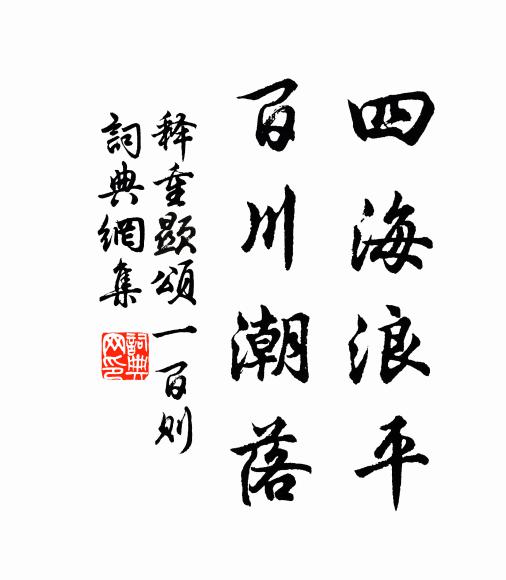 四海浪平
百川潮落
释重顯頌一百则
詞典網集
詞典网印